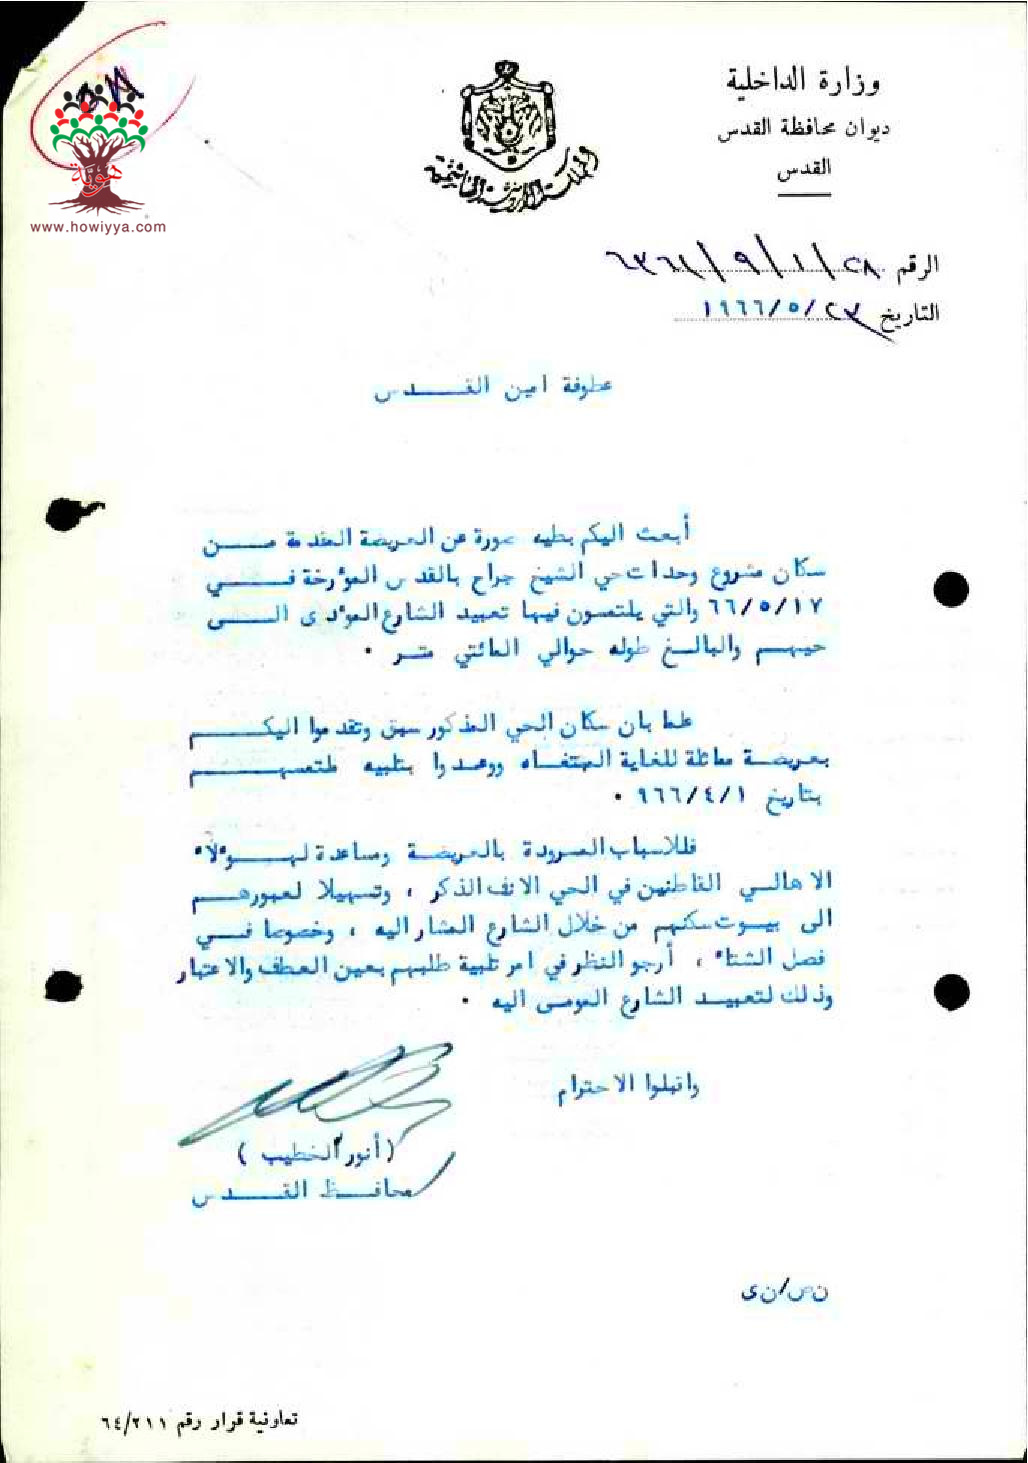 وزارة الداخلية
ديوان محافظة القدس
القدس
المملكة الاردنية الهاشمية
هوية
www.howiyya.com
الرقم ٢٨/١/٩/
التاريخ ١٩٦٦/٥/٢٣
عطوفة امين القـــدس
أبعث اليكم بطيه صورة عن العريضة المقدمة مـــن
سكان مشروع وحدات حي الشيخ جراح بالقدس المؤرخة فـــي
٦٦/٥/١٧ والتي يلتمسون فيها تعبيد الشارع المؤدى الـــى
حيهــم والبالــغ طوله حوالي المائتي متــر .
علما بان سكان الحي المذكور سبق وتقدموا اليكـــم
بعريضــة مماثلة للغاية المبتغــاه ووعــدوا بتلبيه ملتمسهـــم
بتاريخ ٩٦٦/٤/١ .
فللاسباب المسرودة بالعريضــة ومساعدة لهــؤلاء
الاهالــي القاطنين في الحي الانف الذكر ، وتسهيلا لعبورهــم
الى بيــوت سكنهم من خلال الشارع المشار اليه ، وخصوصا فــي
فصل الشتاء ، أرجو النظر في امر تلبية طلبهم بعين العطف والاعتبار
وذلك لتعبيــد الشارع المومى اليه .
واقبلوا الاحترام
( أنور الخطيب )
محافــظ القــدس
ن ص/ن ى
تعاونية قرار رقم ٦٤/٢١١